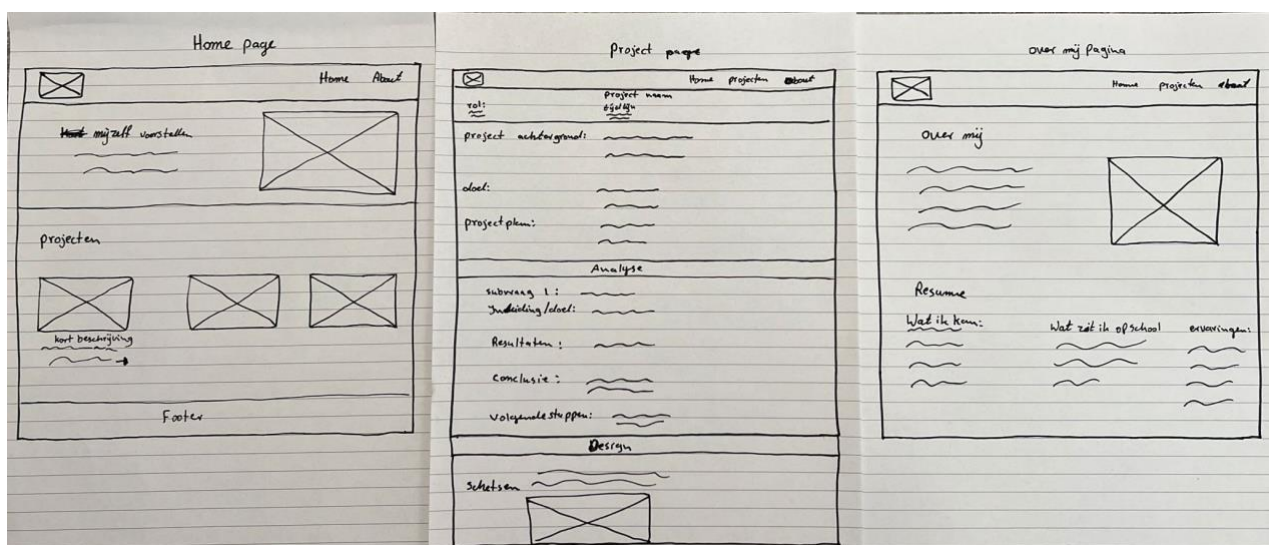 Home page
Home About
mijzelf voorstellen
projecten
kort beschrijving
Footer
Project page
Home projecten about
rol:
project naam
tijdlijn
project achtergrond:
doel:
projectplan:
Analyse
subvraag 1:
Inleiding/doel:
Resultaten:
Conclusie:
Volgende stappen:
Design
schetsen
over mij Pagina
Home projecten about
over mij
Resume
Wat ik kan:
Wat zit ik op school
ervaringen: